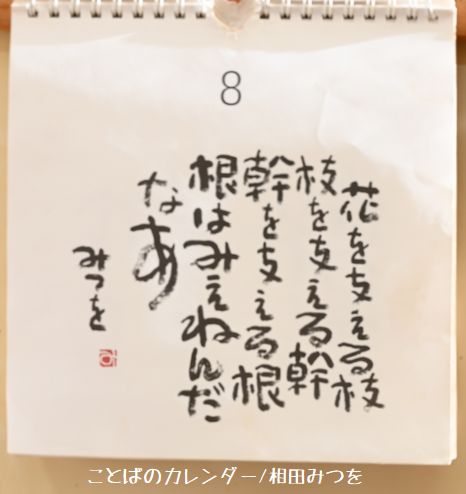 8
花を支える枝
枝を支える幹
幹を支える根
根はみえねんだ
なあ
みつを
ことばのカレンダー/相田みつを